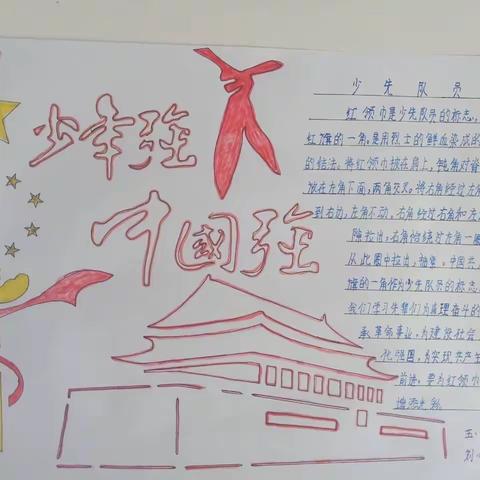 少年强
中國强
少先队员
红领巾是少先队员的标志,
红旗的一角,是用烈士的鲜血染成的
的结法:将红领巾披在肩上,钝角对脊
放在左角下面,两角交叉,将右角经过左角
到右边,左角不动,右角经过右角和左
际拉出,右角恰绕过左角一圈
从此圈中拉出,抽紧。中国共
旗的一角作为少先队员的标志,
我们学习先辈们为真理奋斗的
承革命事业,为建设社会
化强国,为实现共产
前进,要为红领巾
增添光彩
五·
刘